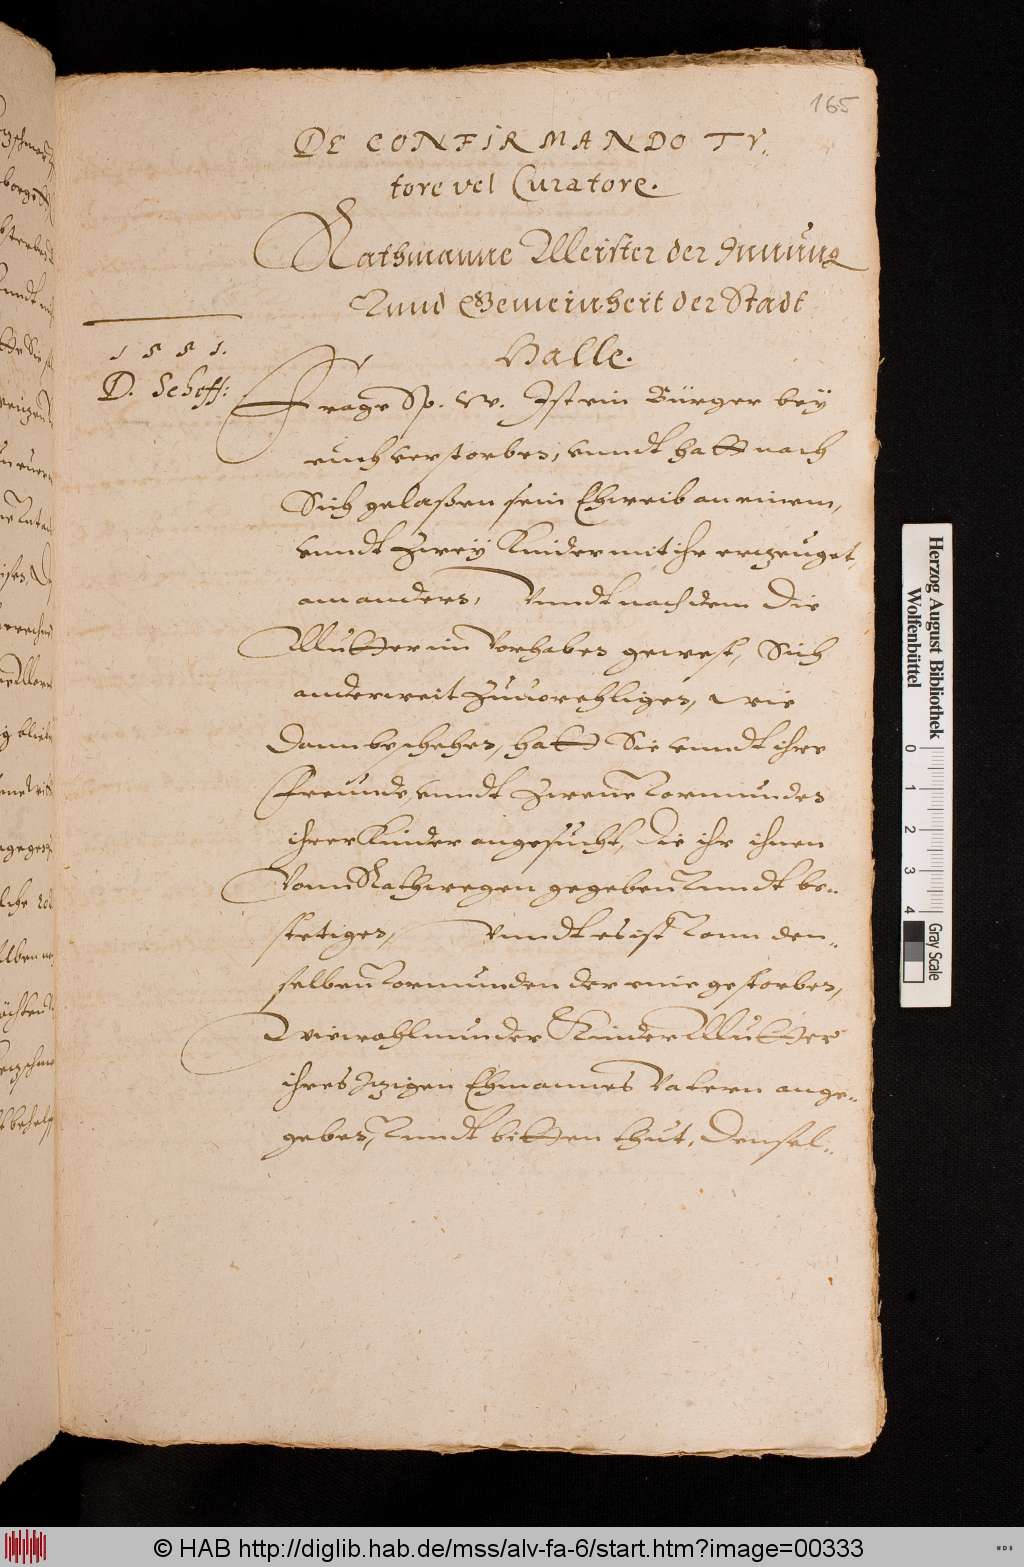 165
DE CONFIRMANDO TV..
tore vel Curatore.
Rathmanne Meister der Innung
Vnnd Gemeinheit der Stadt
Halle.
1551.
D. Schöff:
Frage Sp. W. Ist ein Bürger bey
euch verstorben, vnndt hatt nach
Sich gelaßen sein Ehweib an einem,
vnndt zwey Kinder mit ihr erzeuget,
am andern, Vnndt nach dem die
Mutter im Vorhaben gewest, Sich
anderweit zuuorehligen, wie
dann beschehen, hatt Sie vnndt ihre
Freunde, vnndt zwene Vormunden
ihrer Kinder angesucht, die ihr ihnen
Vonn Rathswegen gegeben Vnndt be..
stetigen, Vnndt es ist Vonn den..
selben Vormunden der eine gestorben,
Wiewohl nun der Kinder Mutter
ihres Itzigen Ehmannes Vatern ange..
geben, Vnndt bitten thut, Densel..
Herzog August Bibliothek
Wolfenbüttel
0 1 2 3 4
Gray Scale
© HAB http://diglib.hab.de/mss/alv-fa-6/start.htm?image=00333